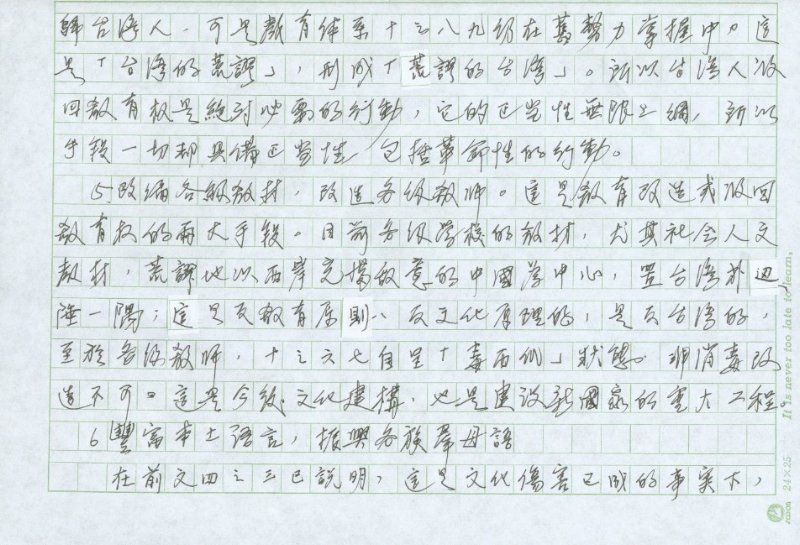 歸台灣人,可是教育体系十之八九仍在舊勢力掌握中,這
是「台灣的荒謬」,形成「荒謬的台灣」。所以台灣人收
回教育权是絕对必要的行動,它的正当性無限上綱,所以
手段一切都具備正当性,包括革命性的行動。
5改編各級教材,改造各級教师。這是教育改造或收回
教育权的兩大手段。目前各級学校的教材,尤其社会人文
教材,荒謬地以西岸充滿敵意的中國為中心,置台灣於边
陲一隅;這是反教育原則、反文化原理的,是反台灣的,
至於各級教师,十之六七自呈「毒西仙」狀態。非消毒改
造不可。這是今後文化建構,也是建設新國家的重大工程。
6豐富本土语言,振興各族羣母語
在前文四之三已說明,這是文化傷害已成的事实下,
It is never too late to learn.
24×25